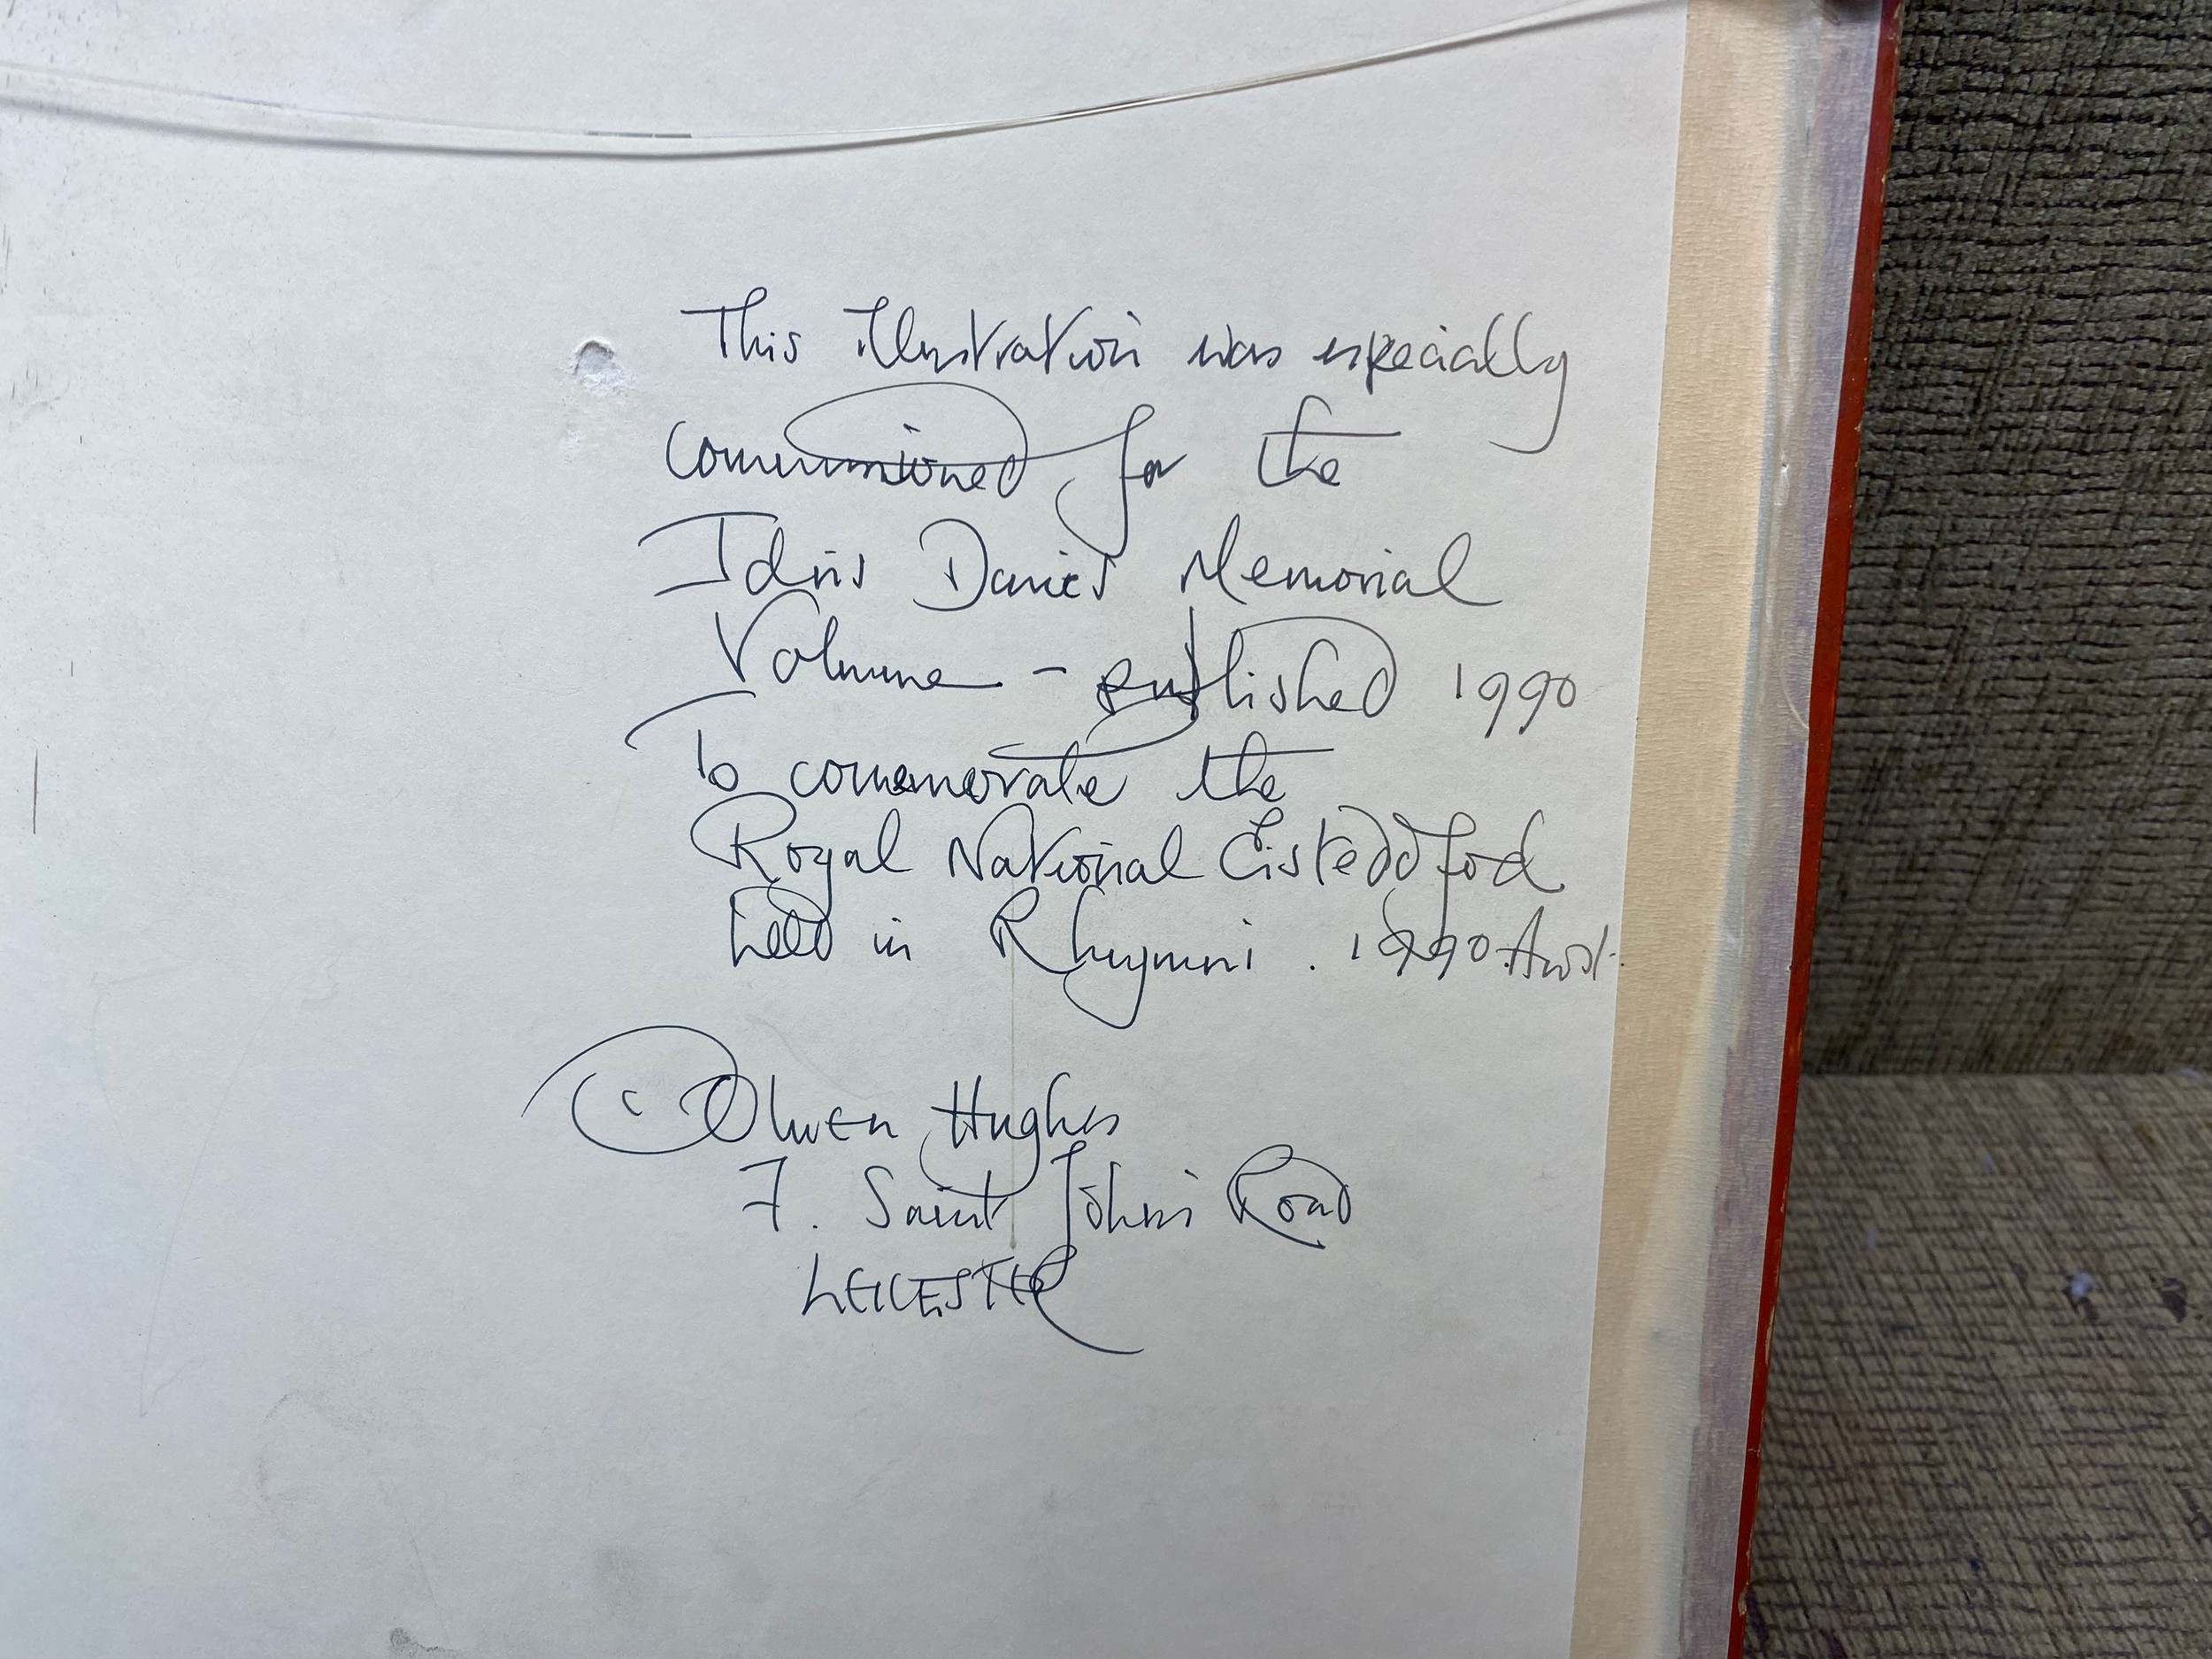 This Illustration was especially
commissioned for the
Idris Davies Memorial
Volume - published 1990
To comemorate the
Royal National Eisteddfod
held in Rhymni . 1990. Awst.
© Olwen Hughes
7. Saint John's Road
LEICESTER